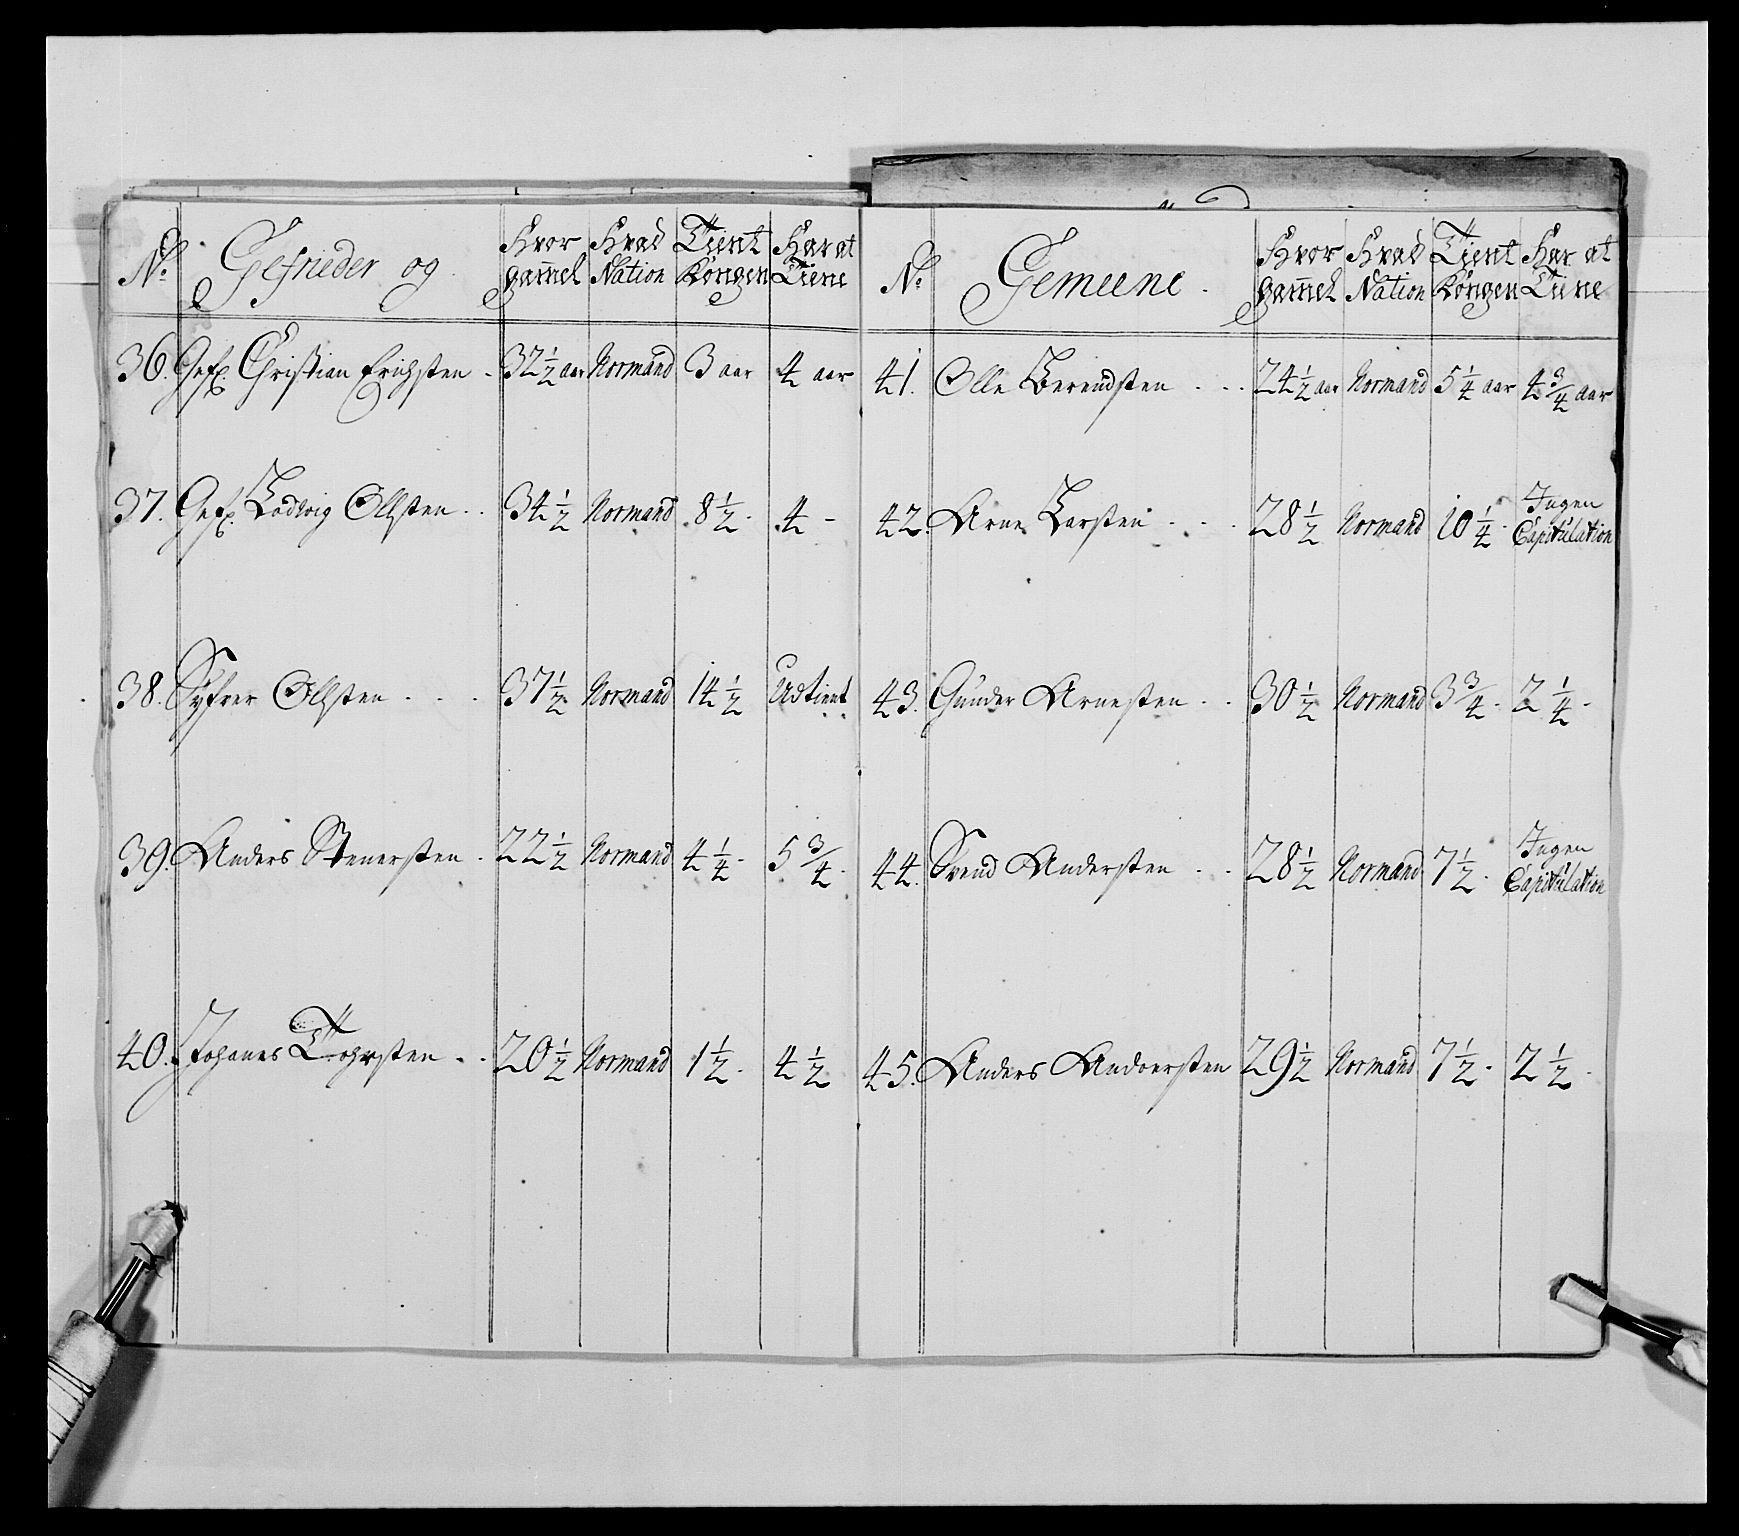 No. Gefrieder og Hvor gammel Hvad Nation Tient Kongen Har at Tiene
36. Gefr. Christian Erichsten . 32 1/2 aar Normand 3 aar 4 aar
37. Gefr. Lodvig Ollsten . . 34 1/2 Normand 8 1/2 . 4 -
38. Syfrer Ollsten . . . 37 1/2 Normand 14 1/2 Udtient
39. Anders Stenersten . 22 1/2 Normand 4 1/4 . 5 3/4 .
40. Johanes Tohrsten . . 20 1/2 Normand 1 1/2 . 4 1/2
No. Gemeene . Hvor gammel Hvad Nation Tient Kongen Har at Tiene
41. Olle Berendsten . . . 24 1/2 aar Normand 5 1/4 aar 4 3/4 aar
42. Arne Larsten . . . 28 1/2 Normand 10 1/4 . Ingen Capitulation
43. Gunder Arnesten . . 30 1/2 Normand 3 3/4 . 2 1/4 .
44. Svend Andersten . . 28 1/2 Normand 7 1/2 . Ingen Capitulation
45. Anders Andoersten 29 1/2 Normand 7 1/2 . 2 1/2 .